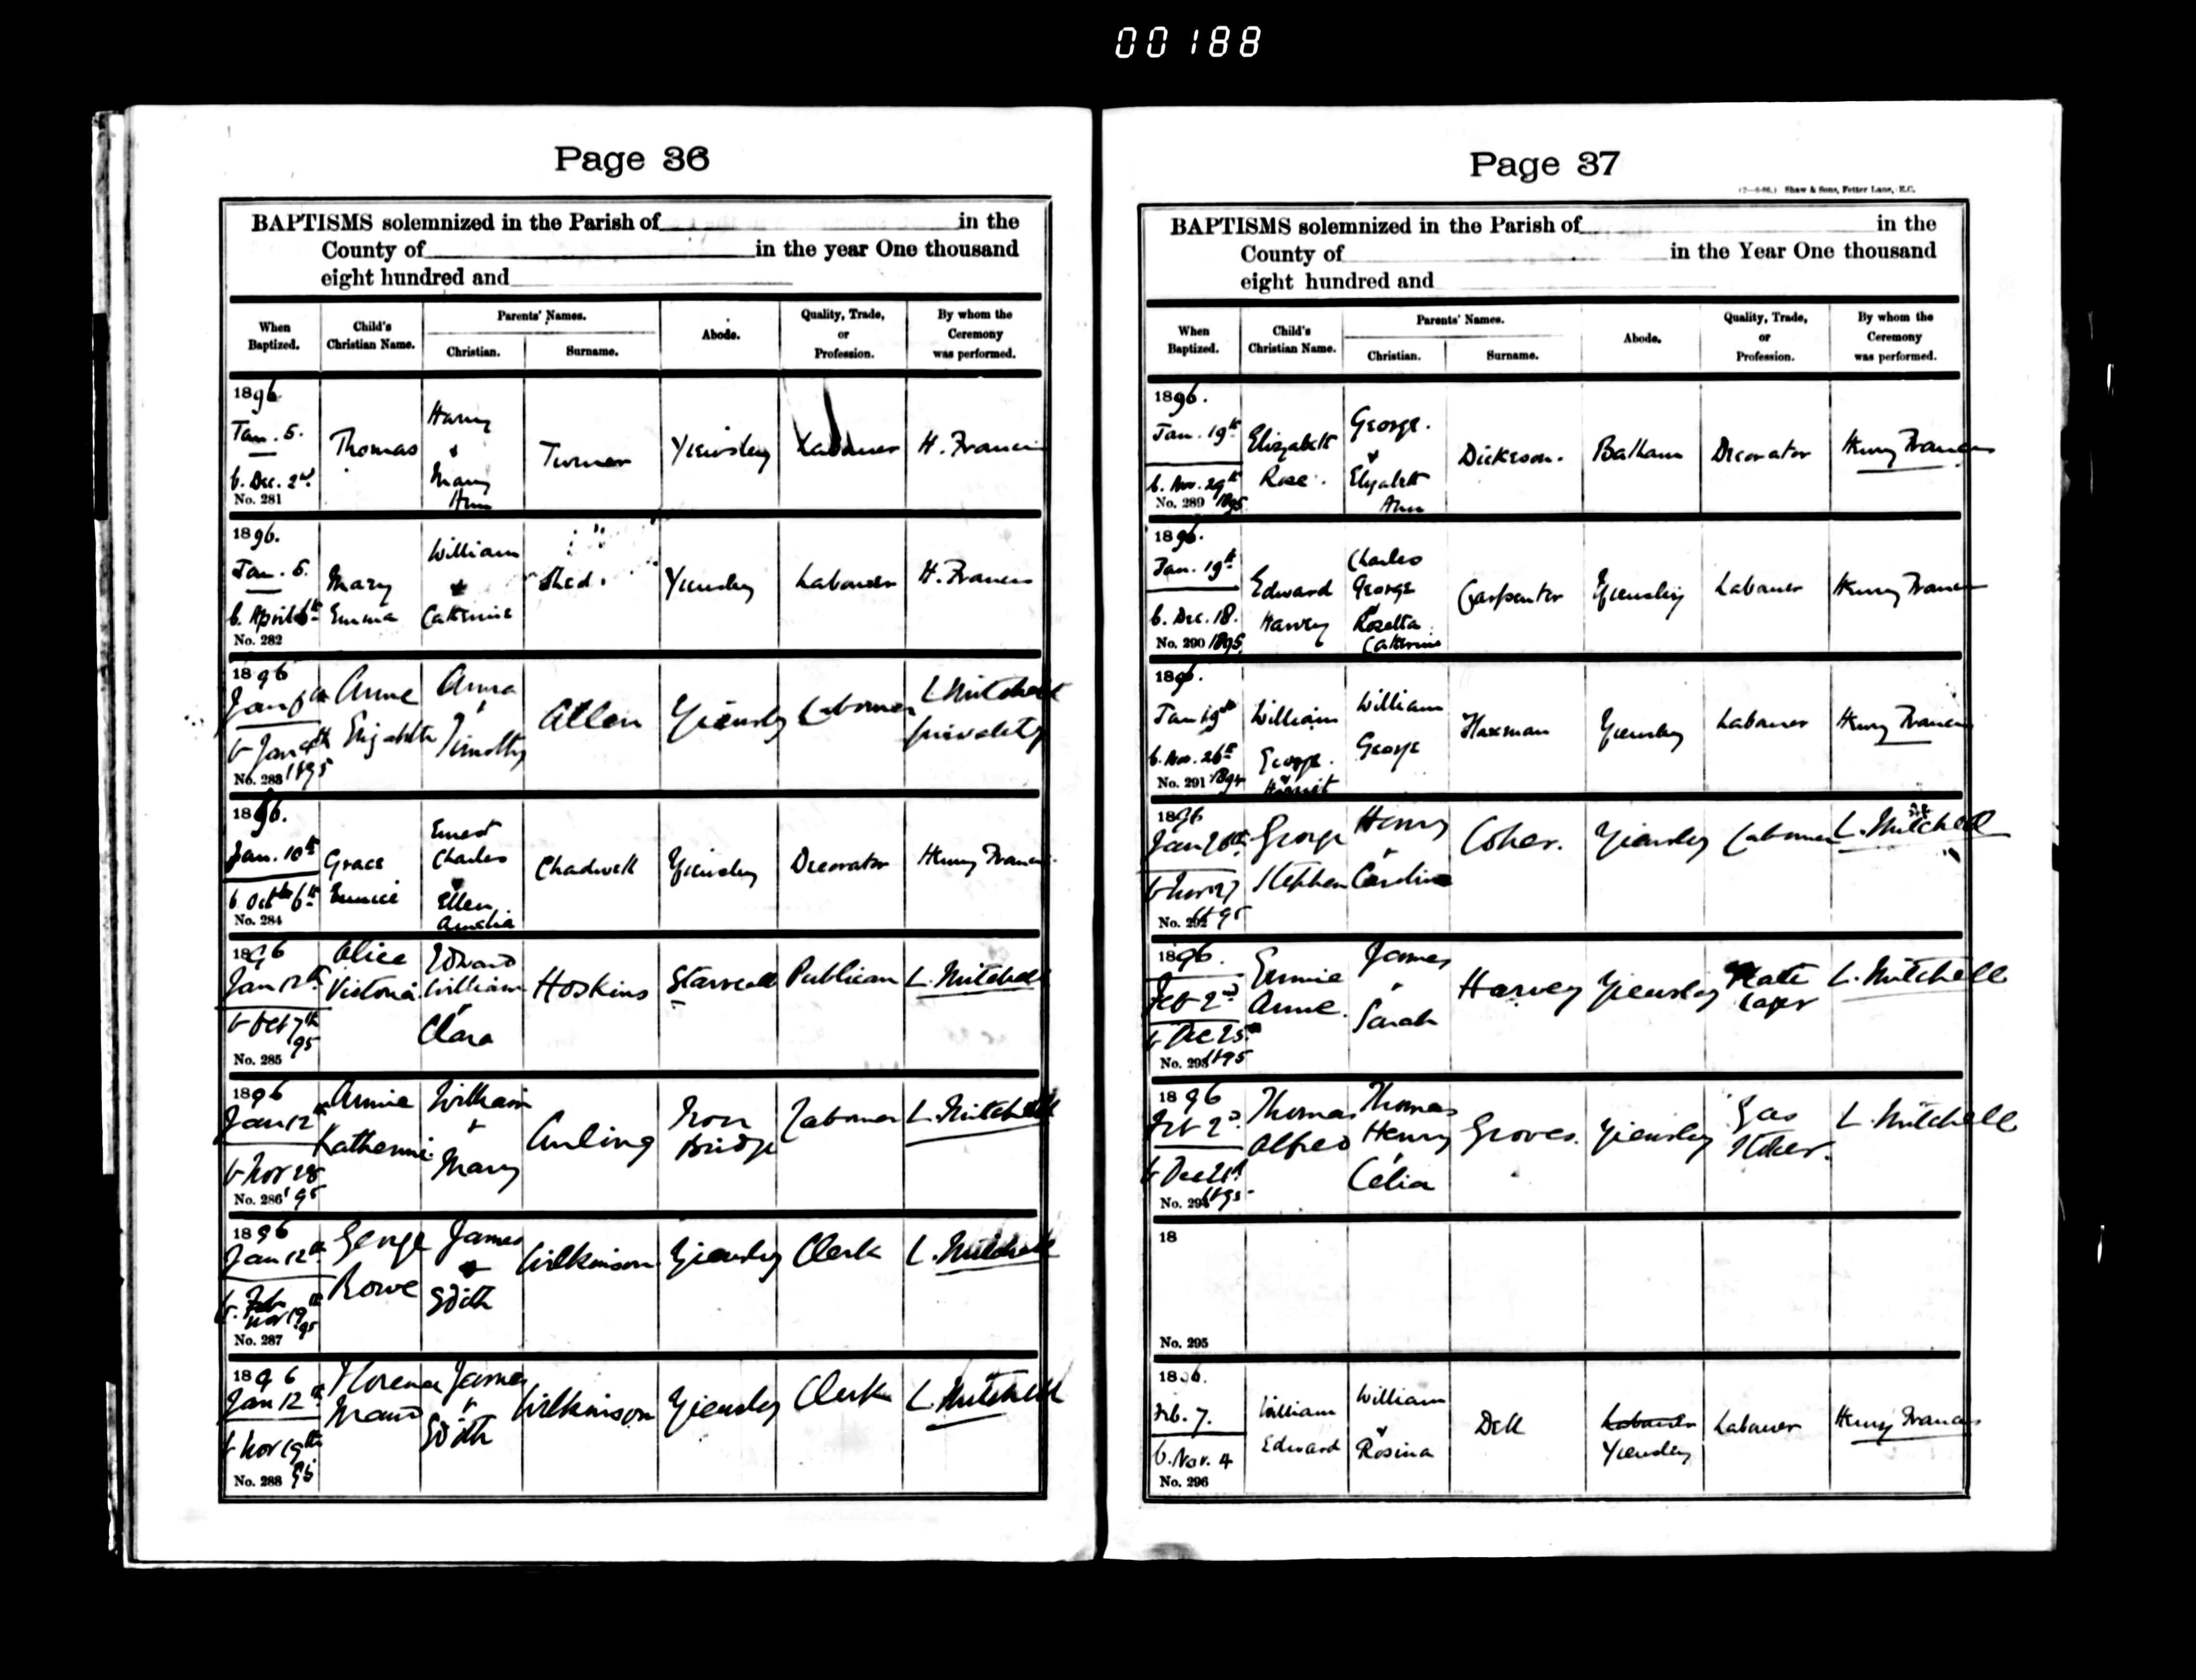 00188
Page 36
BAPTISMS solemnized in the Parish of in the
County of in the year One thousand
eight hundred and
When Baptized.
Child's Christian Name.
Parents' Names.
Christian.
Surname.
Abode.
Quality, Trade, or Profession.
By whom the Ceremony was performed.
1896
Jan. 5.
b. Dec. 2nd
No. 281
Thomas
Harry
&
Mary
Ann
Turner
Yiewsley
Labourer
H. Francis
1896.
Jan. 5.
b. April 6th
No. 282
Mary
Emma
William
&
Catherine
Shed.
Yiewsley
Labourer
H. Francis
1896
Jan 6th
b Jan
1895
No. 283
Anne
Elizabeth
Anna
&
Timothy
Allen
Yiewsley
Labourer
L Mitchell
privately
1896.
Jan. 10th
b. Octbr 6th
No. 284
Grace
Eunice
Ernest
Charles
&
Ellen
Amelia
Chadwell
Yiewsley
Decorator
Henry Francis
1896
Jan 12th
b Oct 7th
95
No. 285
Alice
Victoria
Edward
William
&
Clara
Hoskins
Starveall
Publican
L. Mitchell
1896
Jan 12th
b Nov 28
95
No. 286
Annie
Katherine
William
&
Mary
Anling
Iron
Bridge
Labourer
L. Mitchell
1896
Jan 12th
b. Feb
Nov 19th
95
No. 287
George
Rowe
James
&
Edith
Wilkinson
Yiewsley
Clerk
L. Mitchell
1896
Jan 12th
b Nov 19th
95
No. 288
Florence
Maud
James
&
Edith
Wilkinson
Yiewsley
Clerk
L. Mitchell
Page 37
Shaw & Sons, Fetter Lane, E.C.
BAPTISMS solemnized in the Parish of in the
County of in the Year One thousand
eight hundred and
When Baptized.
Child's Christian Name.
Parents' Names.
Christian.
Surname.
Abode.
Quality, Trade, or Profession.
By whom the Ceremony was performed.
1896.
Jan. 19th
b. Nov. 29th
No. 289 1895
Elizabeth
Rose.
George.
&
Elizabeth
Ann
Dickeson.
Balham
Decorator
Henry Francis
1896.
Jan. 19th
b. Dec. 18.
No. 290 1895
Edward
Harvey
Charles
George
&
Rosetta
Catherine
Carpenter
Yiewsley
Labourer
Henry Francis
1896.
Jan 19th
b. Nov. 26th
No. 291
William
George.
& Harriet
William
George
Flaxman
Yiewsley
Labourer
Henry Francis
1896
Jan 20th
b Nov 27
1895
No. 292
George
Stephen
Henry
&
Caroline
Coker.
Yiewsley
Labourer
L. Mitchell
1896.
Feb 2nd
b Dec 25
No. 293 1895
Annie
James
&
Sarah
Harvey
Yiewsley
Plate
layer
L. Mitchell
1896
Feb 2nd
b Dec 21st
No. 294 1895
Thomas
Alfred
Thomas
Henry
&
Celia
Groves.
Yiewsley
Gas
Stoker.
L. Mitchell
18
No. 295
1896.
Feb. 7.
b. Nov. 4
No. 296
William
Edward
William
&
Rosina
Dell
Labourer
Yiewsley
Labourer
Henry Francis